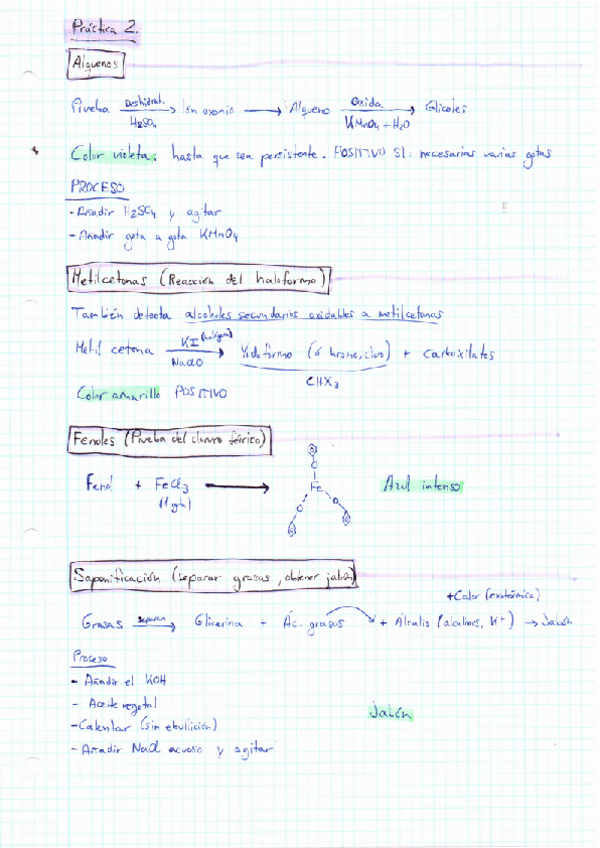 Práctica 2.
Alquenos
Prueba Deshidrat. H2SO4 → Ion oxonio → Alqueno Oxida KMnO4 + H2O → Glicoles
Color violeta: hasta que sea persistente. POSITIVO SI: necesarias varias gotas
PROCESO
- Añadir H2SO4 y agitar
- Añadir gota a gota KMnO4
Metilcetonas (Reacción del haloformo)
También detecta alcoholes secundarios oxidables a metilcetonas
Metil cetona KI (halógeno) NaClO → Yodoformo (ó bromo, cloro) + Carboxilatos
CHX3
Color amarillo POSITIVO
Fenoles (Prueba del cloruro férrico)
Fenol + FeCl3 → Azul intenso
(1 gota)
O
Fe
O O
Saponificación (separar grasas, obtener jabón)
+Calor (exotérmica)
Grasas separan → Glicerina + Ác. grasos + Álcalis (alcalinos, K+) → Jabón
Proceso
- Añadir el KOH
- Aceite vegetal
- Calentar (sin ebullición)
- Añadir NaCl acuoso y agitar
Jabón